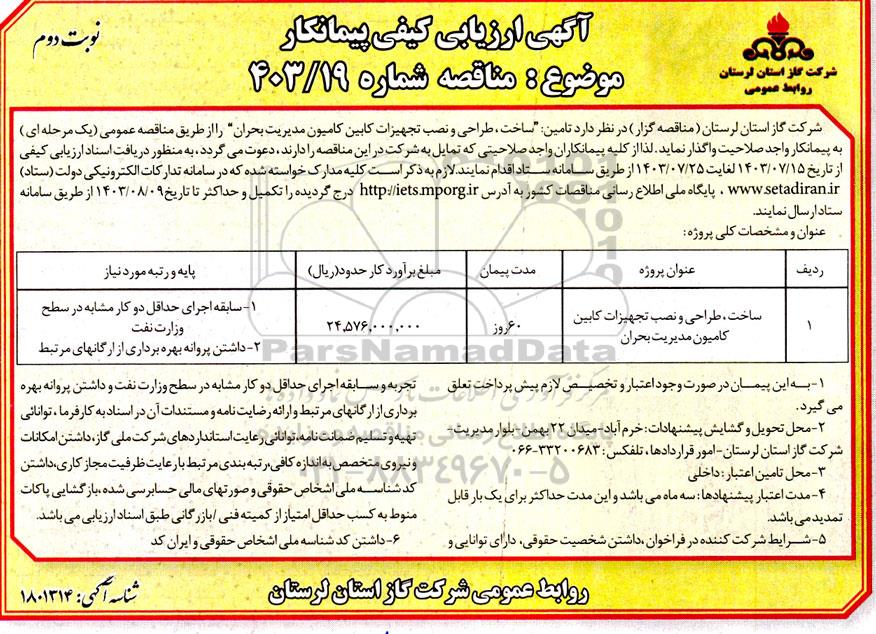 آگهی ارزیابی کیفی پیمانکار
نوبت دوم
موضوع : مناقصه شماره ۴۰۳/۱۹
شرکت گاز استان لرستان
روابط عمومی
شرکت گاز استان لرستان (مناقصه گزار) در نظر دارد تامین: "ساخت ، طراحی و نصب تجهیزات کابین کامیون مدیریت بحران" را از طریق مناقصه عمومی (یک مرحله ای)
به پیمانکار واجد صلاحیت واگذار نماید. لذا از کلیه پیمانکاران واجد صلاحیتی که تمایل به شرکت در این مناقصه را دارند، دعوت می گردد، به منظور دریافت اسناد ارزیابی کیفی
از تاریخ ۱۴۰۳/۰۷/۱۵ لغایت ۱۴۰۳/۰۷/۲۵ از طریق سامانه ستاد اقدام نمایند. لازم به ذکر است کلیه مدارک خواسته شده که در سامانه تدارکات الکترونیکی دولت (ستاد)
www.setadiran.ir ، پایگاه ملی اطلاع رسانی مناقصات کشور به آدرس http://iets.mporg.ir درج گردیده را تکمیل و حداکثر تا تاریخ ۱۴۰۳/۰۸/۰۹ از طریق سامانه
ستاد ارسال نمایند.
عنوان و مشخصات کلی پروژه:
ردیف
عنوان پروژه
مدت پیمان
مبلغ برآورد کار حدود(ریال)
پایه و رتبه مورد نیاز
۱
ساخت ، طراحی و نصب تجهیزات کابین
کامیون مدیریت بحران
۶۰روز
۲۴,۵۷۶,۰۰۰,۰۰۰
۱- سابقه اجرای حداقل دو کار مشابه در سطح
وزارت نفت
۲- داشتن پروانه بهره برداری از ارگانهای مرتبط
ParsNamadData
۱- به این پیمان در صورت وجود اعتبار و تخصیص لازم پیش پرداخت تعلق
می گیرد.
۲-محل تحویل و گشایش پیشنهادات: خرم آباد-میدان ۲۲ بهمن-بلوار مدیریت-
شرکت گاز استان لرستان-امور قراردادها، تلفکس: ۳۳۲۰۰۶۸۳-۰۶۶
۳-محل تامین اعتبار : داخلی
۴- مدت اعتبار پیشنهادها : سه ماه می باشد و این مدت حداکثر برای یک بار قابل
تمدید می باشد.
۵-شرایط شرکت کننده در فراخوان ،داشتن شخصیت حقوقی، دارای توانایی و
تجربه و سابقه اجرای حداقل دو کار مشابه در سطح وزارت نفت و داشتن پروانه بهره
برداری از ارگانهای مرتبط و ارائه رضایت نامه و مستندات آن در اسناد به کارفرما ، توانائی
تهیه و تسلیم ضمانت نامه، توانائی رعایت استانداردهای شرکت ملی گاز، داشتن امکانات
و نیروی متخصص به اندازه کافی، رتبه بندی مرتبط با رعایت ظرفیت مجاز کاری، داشتن
کد شناسه ملی اشخاص حقوقی و صورتهای مالی حسابرسی شده ، بازگشایی پاکات
منوط به کسب حداقل امتیاز از کمیته فنی / بازرگانی طبق اسناد ارزیابی می باشد.
۶-داشتن کد شناسه ملی اشخاص حقوقی و ایران کد
۰۲۱-۸۸۳۴۹۶۷۰-۵
روابط عمومی شرکت گاز استان لرستان
شناسه آگهی: ۱۸۰۱۳۱۴